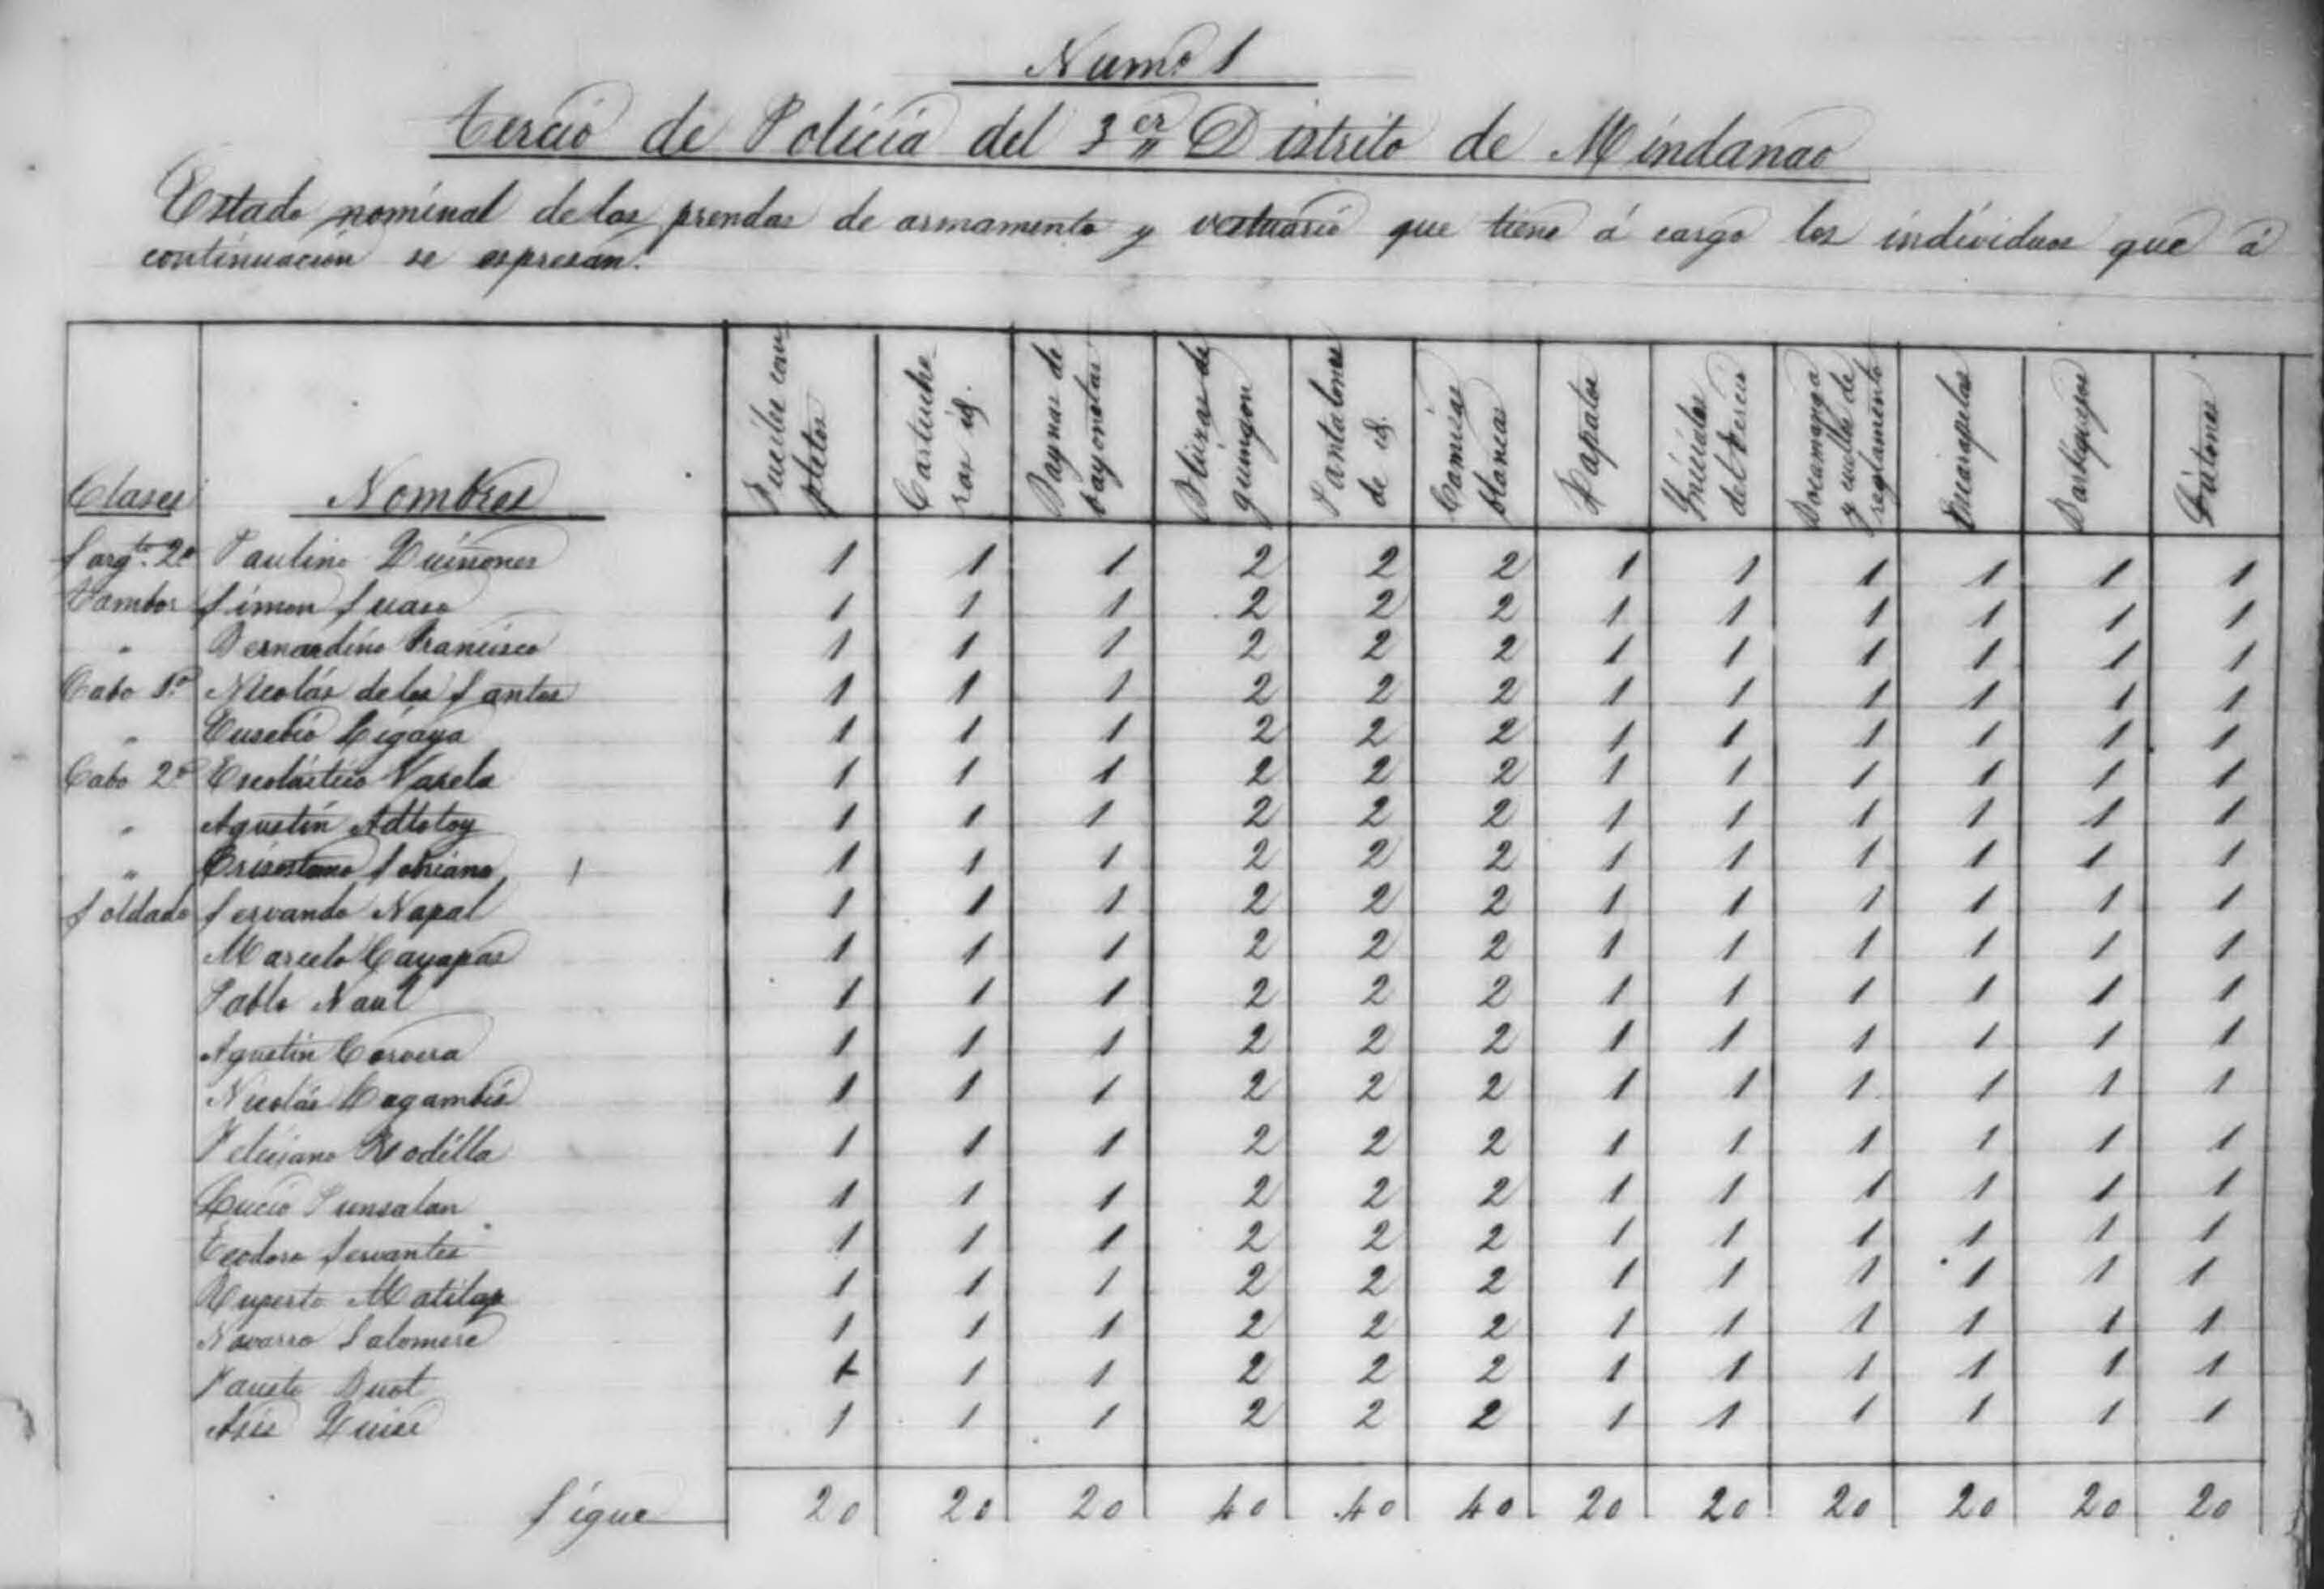 Numº 1
Tercio de Policia del 3er Distrito de Mindanao
Estado nominal de las prendas de armamento y vestuario que tiene á cargo los individuos que á
continuación se espresan.
Clases Nombres Fusiles completos Cartucheras id. Baynas de bayonetas Blusas de guingon Pantalones de id. Camisas blancas Zapatos Iniciales del Tercio Bocamanga y cuello de reglamento Escarapelas Barbiquejos
Sargto. 2º Paulino Quiñones 1 1 1 2 2 2 1 1 1 1 1 1
Tambor Simon Suaso 1 1 1 2 2 2 1 1 1 1 1 1
" Bernardino Francisco 1 1 1 2 2 2 1 1 1 1 1 1
Cabo 1º Nicolás de los Santos 1 1 1 2 2 2 1 1 1 1 1 1
" Eusebio Ligaya 1 1 1 2 2 2 1 1 1 1 1 1
Cabo 2º Escolástico Varela 1 1 1 2 2 2 1 1 1 1 1 1
" Agustín Adlotoy 1 1 1 2 2 2 1 1 1 1 1 1
" Crisostomo Soriano 1 1 1 2 2 2 1 1 1 1 1 1
Soldado Servando Napal 1 1 1 2 2 2 1 1 1 1 1 1
Marcelo Cayapas 1 1 1 2 2 2 1 1 1 1 1 1
Pablo Naul 1 1 1 2 2 2 1 1 1 1 1 1
Agustin Corvera 1 1 1 2 2 2 1 1 1 1 1 1
Nicolás Lagambis 1 1 1 2 2 2 1 1 1 1 1 1
Feliciano Rodilla 1 1 1 2 2 2 1 1 1 1 1 1
Lucio Punsalan 1 1 1 2 2 2 1 1 1 1 1 1
Teodoro Servantes 1 1 1 2 2 2 1 1 1 1 1 1
Ruperto Matilap 1 1 1 2 2 2 1 1 1 1 1 1
Navarro Salomere 1 1 1 2 2 2 1 1 1 1 1 1
Fausto 1 1 1 2 2 2 1 1 1 1 1 1
Asis 1 1 1 2 2 2 1 1 1 1 1 1
Sigue 20 20 20 40 40 40 20 20 20 20 20 20